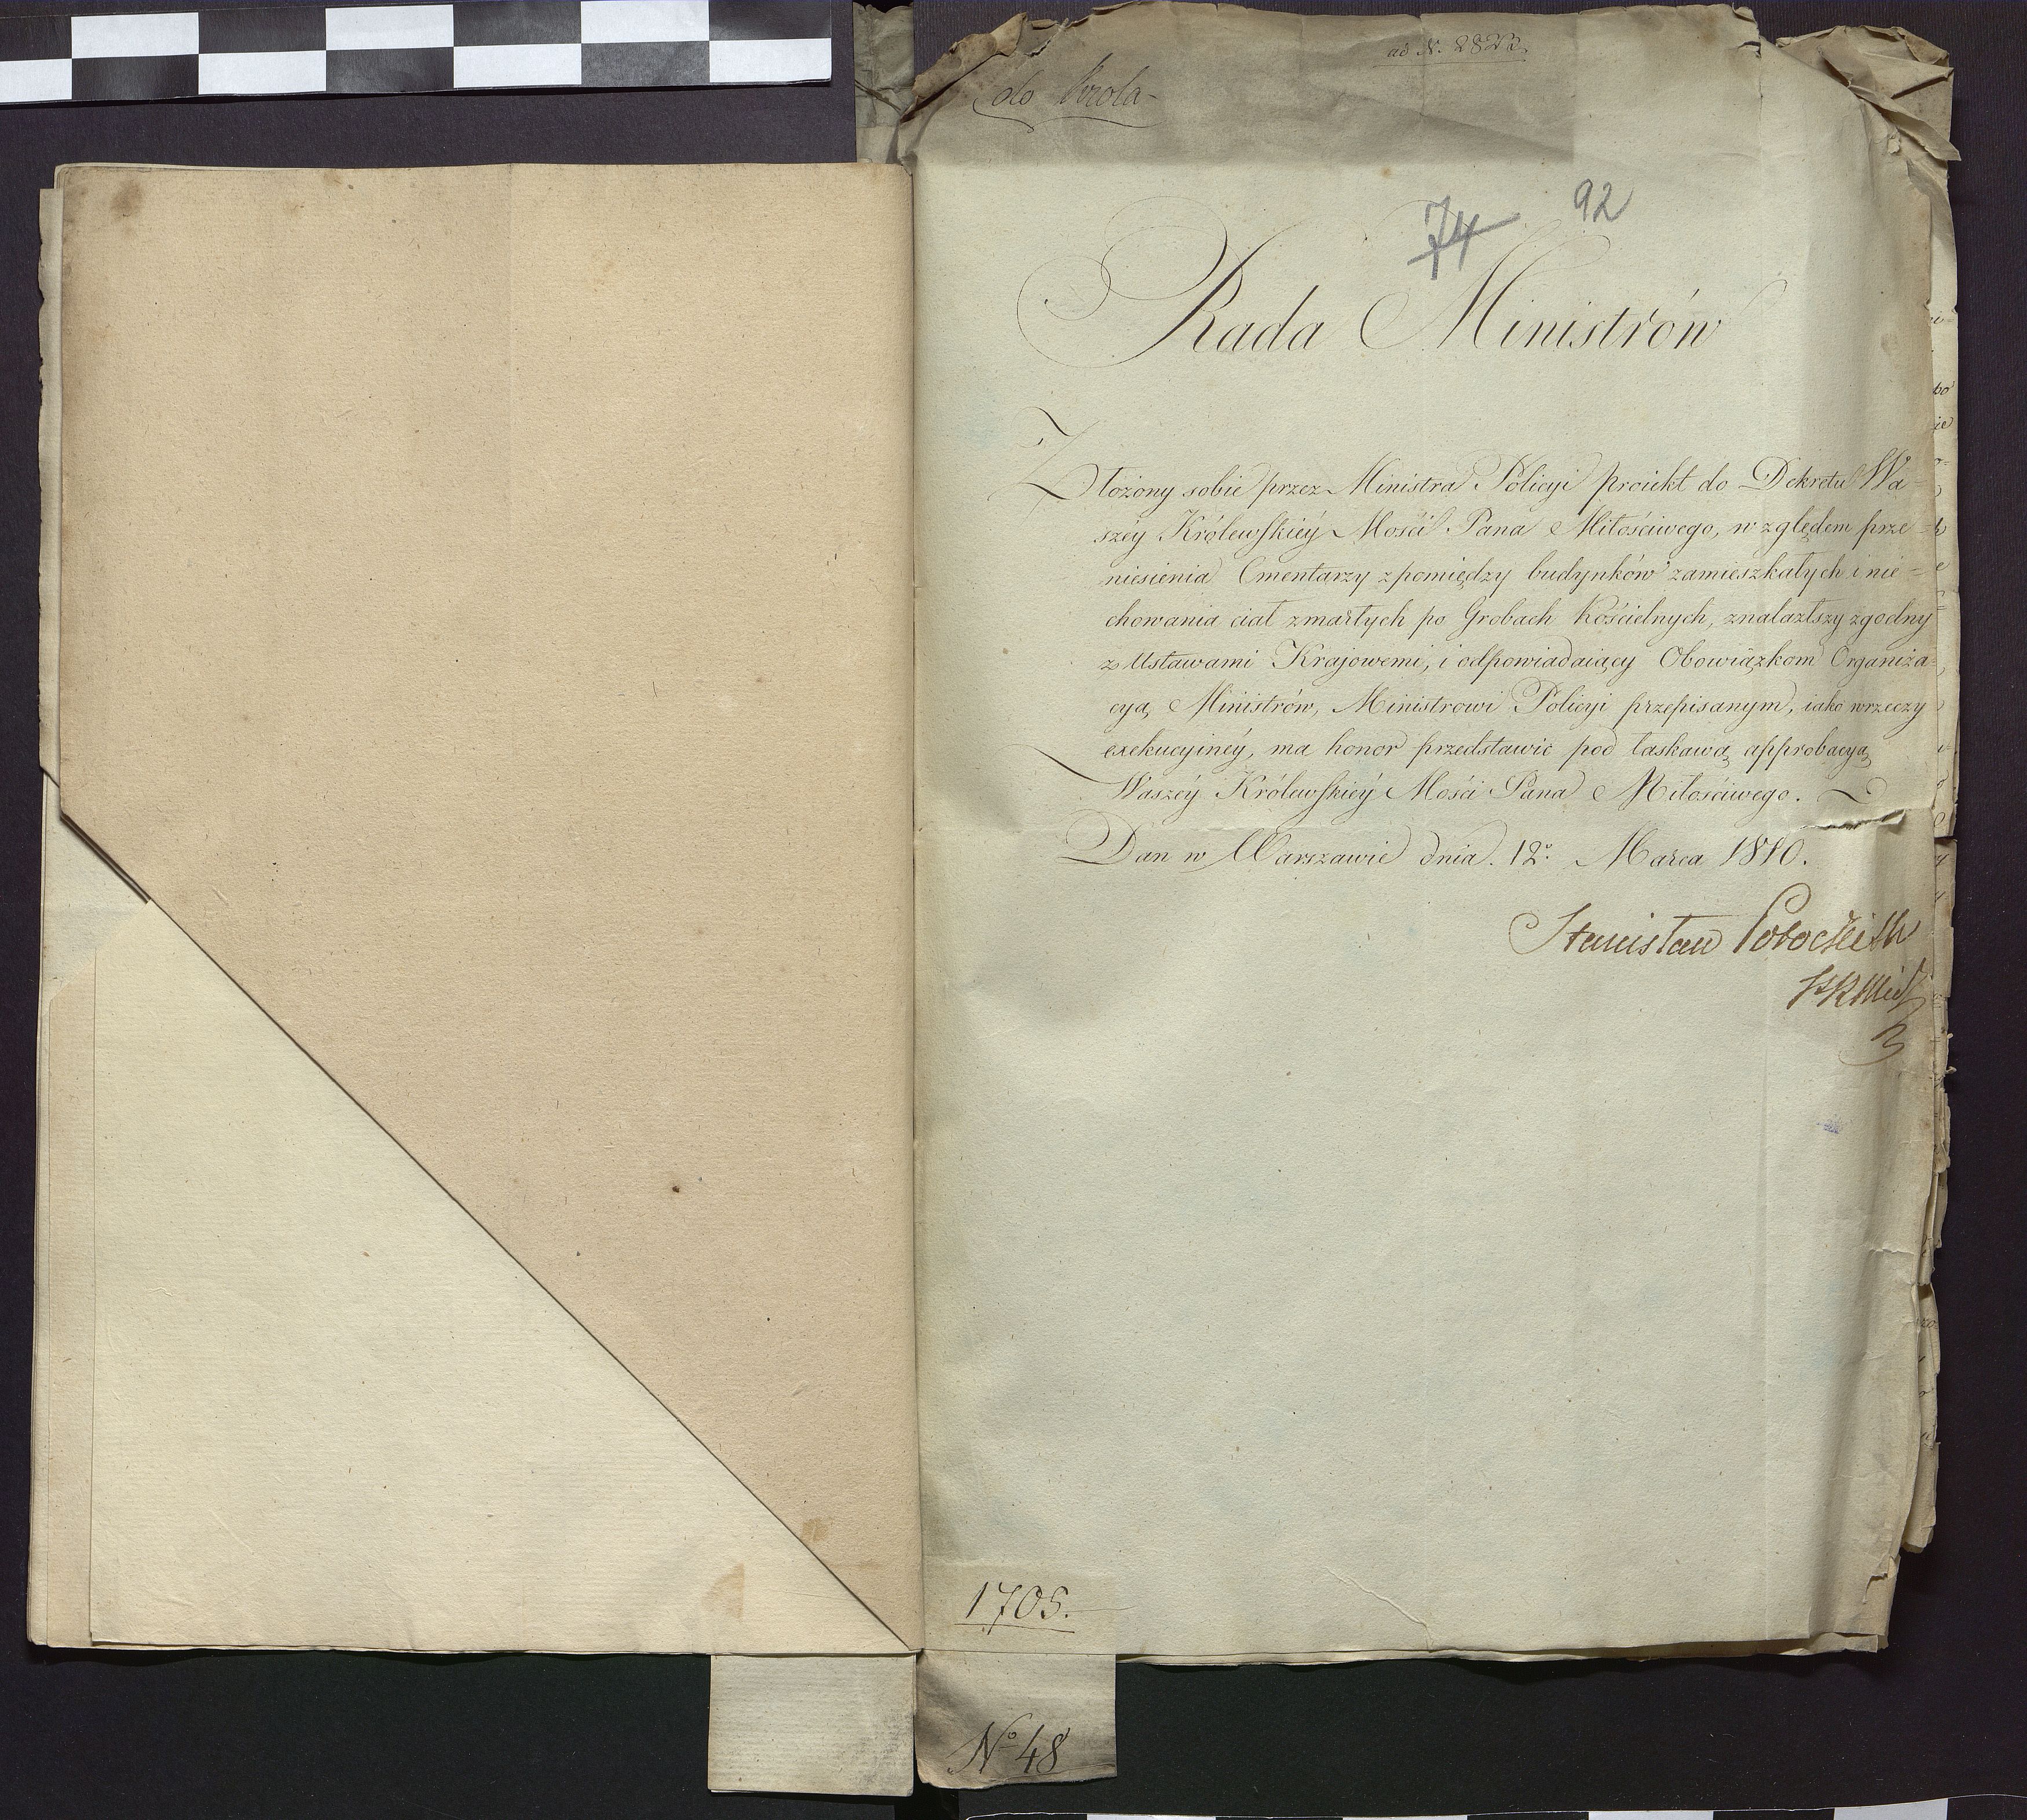 ad N. 2823
do Krola
74 92
Rada Ministrów
Złożony sobie przez Ministra Policyi proiekt do Dekretu Wa-
széy Królewskiéy Mości Pana Miłościwego, względem prze=
niesienia Cmentarzy z pomiędzy budynków zamieszkałych i nie=
chowania ciał zmarłych po Grobach Kościelnych, znalazłszy zgodny
z Ustawami Krajowemi, i odpowiadaiący Obowiązkom Organiza-
cyą Ministrów, Ministrowi Policyi przepisanym, iako w rzeczy
exekucyinéy, ma honor przedstawić pod łaskawą approbacyą
Waszéy Królewskiéy Mości Pana Miłościwego.
Dan w Warszawie dnia. 12º. Marca 1810.
Stanisław Potocki
1705.
Nº 48